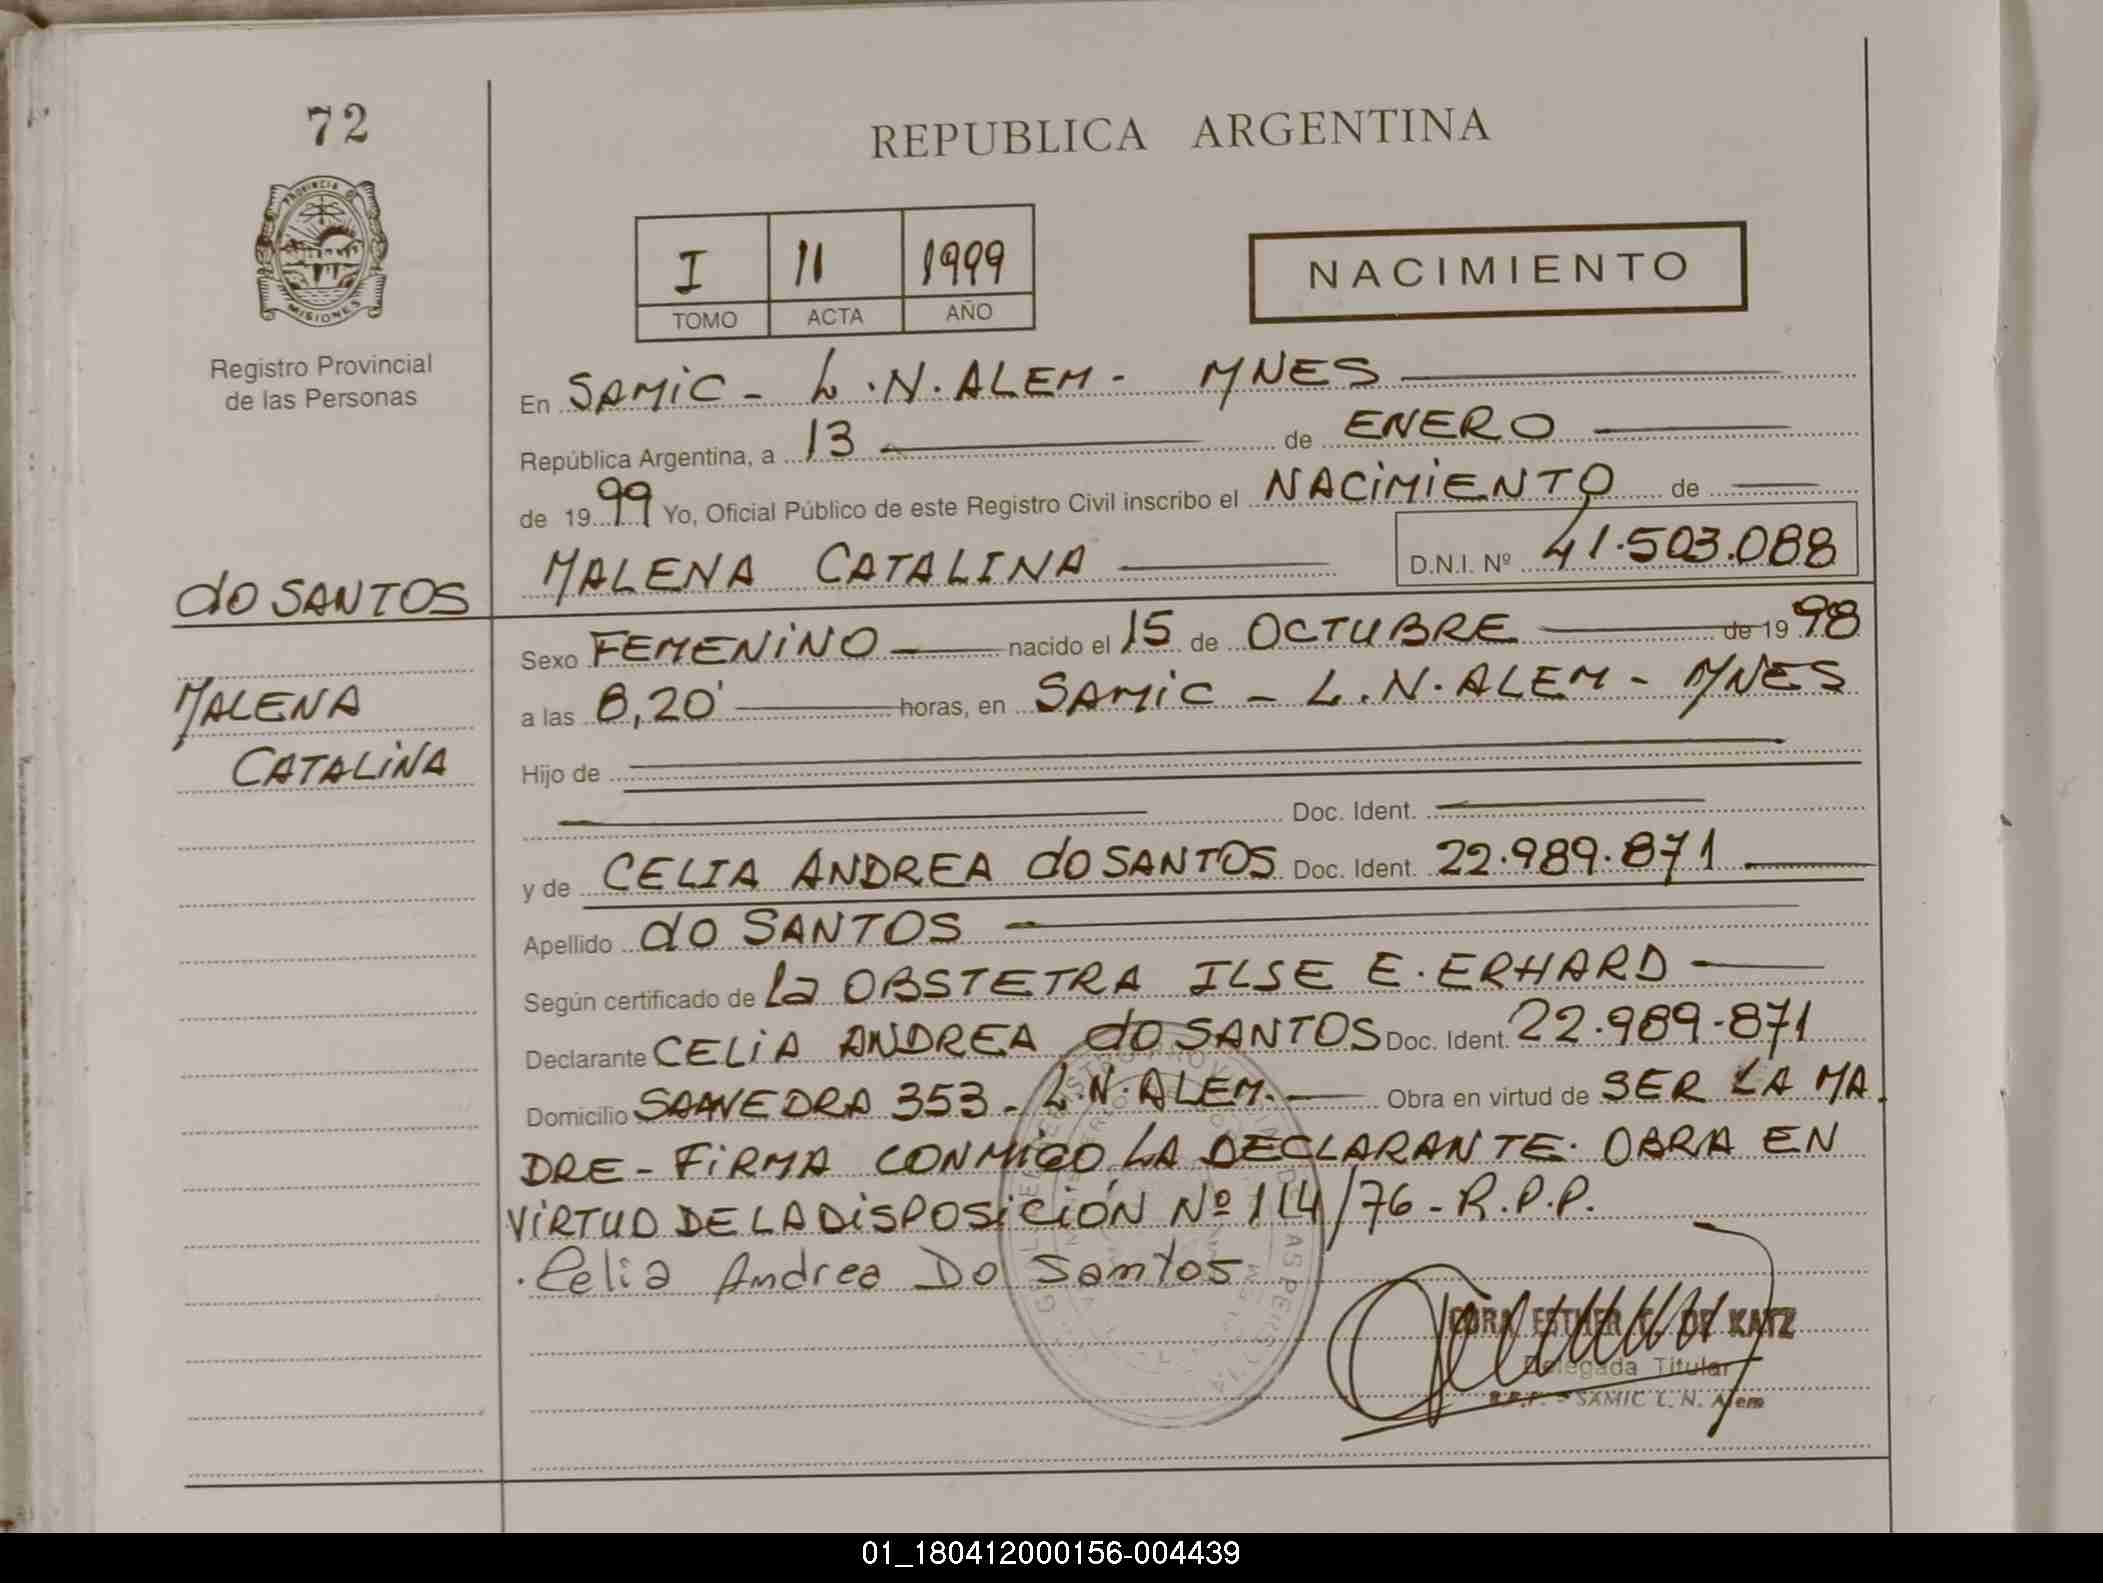 72
REPUBLICA ARGENTINA
PROVINCIA DE
MISIONES
Registro Provincial
de las Personas
I 11 1999
TOMO ACTA AÑO
NACIMIENTO
En SAMIC - L.N. ALEM - MNES
República Argentina, a 13 de ENERO
de 1999 Yo, Oficial Público de este Registro Civil inscribo el NACIMIENTO de
MALENA CATALINA D.N.I. Nº 41.503.088
do SANTOS
MALENA
CATALINA
Sexo FEMENINO nacido el 15 de OCTUBRE de 1998
a las 8,20' horas, en SAMIC - L.N. ALEM - MNES
Hijo de
Doc. Ident.
y de CELIA ANDREA do SANTOS Doc. Ident. 22.989.871
Apellido do SANTOS
Según certificado de la OBSTETRA ILSE E. ERHARD
Declarante CELIA ANDREA do SANTOS Doc. Ident. 22.989.871
Domicilio SAAVEDRA 353 - L.N. ALEM. Obra en virtud de SER LA MA
DRE - FIRMA CONMIGO LA DECLARANTE. OBRA EN
VIRTUD DE LA DISPOSICIÓN Nº 114/76 - R.P.P.
Celia Andrea Do Santos
ESTHER DE KATZ
Delegada Titular
R.P.P. - SAMIC L. N. Alem
01_180412000156-004439